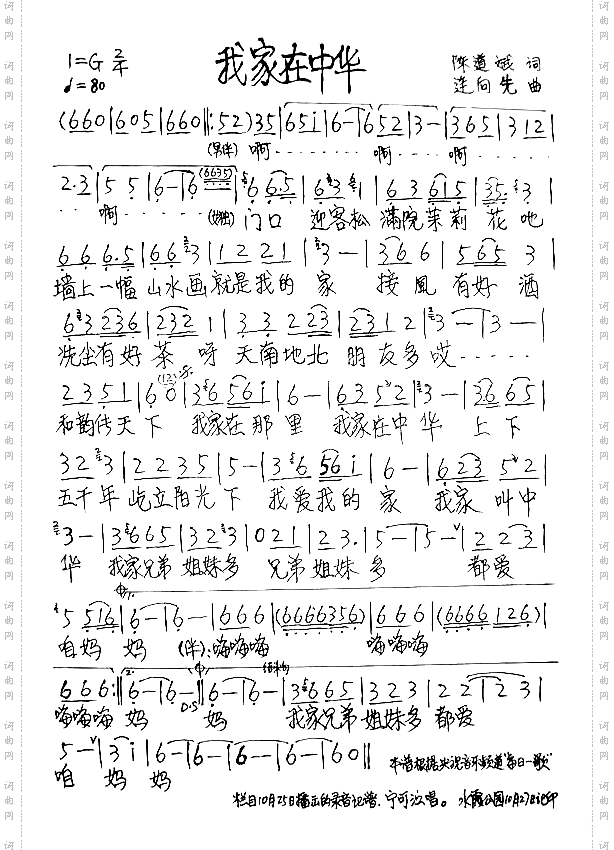 我家在中华
1=G 2/4
♩=80
陈道斌 词
连向先 曲
(660|605|660‖:52)35|65i|6-|652|3-|365|312|
(男伴) 啊 啊 啊
2·3|55|6-|6 (6635)|6 65|6 3|6 3 615|35· 3|
啊 (女独) 门口 迎客松 满院茉莉 花 吔
6 6 6·5|6 6 3|1 2 2 1|3-|36 6|565 3|
墙上一幅 山水画 就是我的 家 接風 有好 酒
63 236|232 1|3 3 223|231 2|3-|3-|
洗尘有好 茶 呀 天南地北 朋 友多 哎
2351|60|36 56i|6-|63 52|3-|36 65|
和韵传天 下 我家在那 里 我家在中 华 上 下
32 3|2235|5-|36 56i|6-|6 23 52|
五千年 屹立阳光 下 我爱我的 家 我家 叫中
3-|3665|32 3|021|23·|5-|5-|223|
华 我家兄弟 姐妹多 兄弟 姐妹 多 都爱
5 516|6-|6-|666|(6666356)|666|(6666126)|
咱妈 妈 (伴):嗨嗨嗨 嗨嗨嗨
666:‖6-|6-‖6-|6-|3665|323|22|23|
D·S 结束句
嗨嗨嗨 妈 妈 我家兄弟 姐妹多 都爱
5-|3i|6-|6-|6-|6-|60‖
咱 妈 妈
本谱根据央视音乐频道"每日一歌"
栏目10月25日播出的录音记谱,宁可汝唱。 水霞公园10月27日记印
词曲网